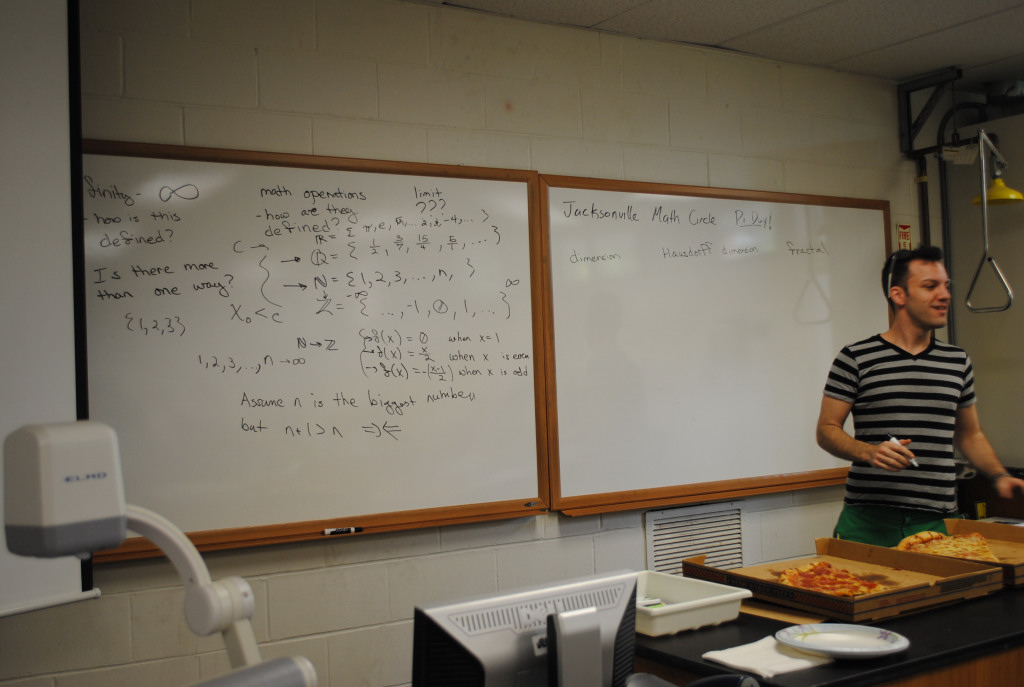 finity - ∞
- how is this
defined?
Is there more
than one way?
{1,2,3}
math operations
- how are they
defined?
limit
???
ℝ = { π, e,
C →
ℚ = { 1/2, 3/7, 15/4, 5/1, ... }
ℕ = {1, 2, 3, ..., n, }
ℤ = { ..., -1, 0, 1, ... }
-∞
∞
ℵ₀ < c
ℕ → ℤ
f(x) = 0 when x = 1
f(x) = x/2 when x is even
f(x) = -(x-1/2) when x is odd
1, 2, 3, ..., n → ∞
Assume n is the biggest number
but n+1 > n ⇒⇐
Jacksonville Math Circle Pi Day!
dimension Hausdorff dimension fractal
ELMO
FIRE